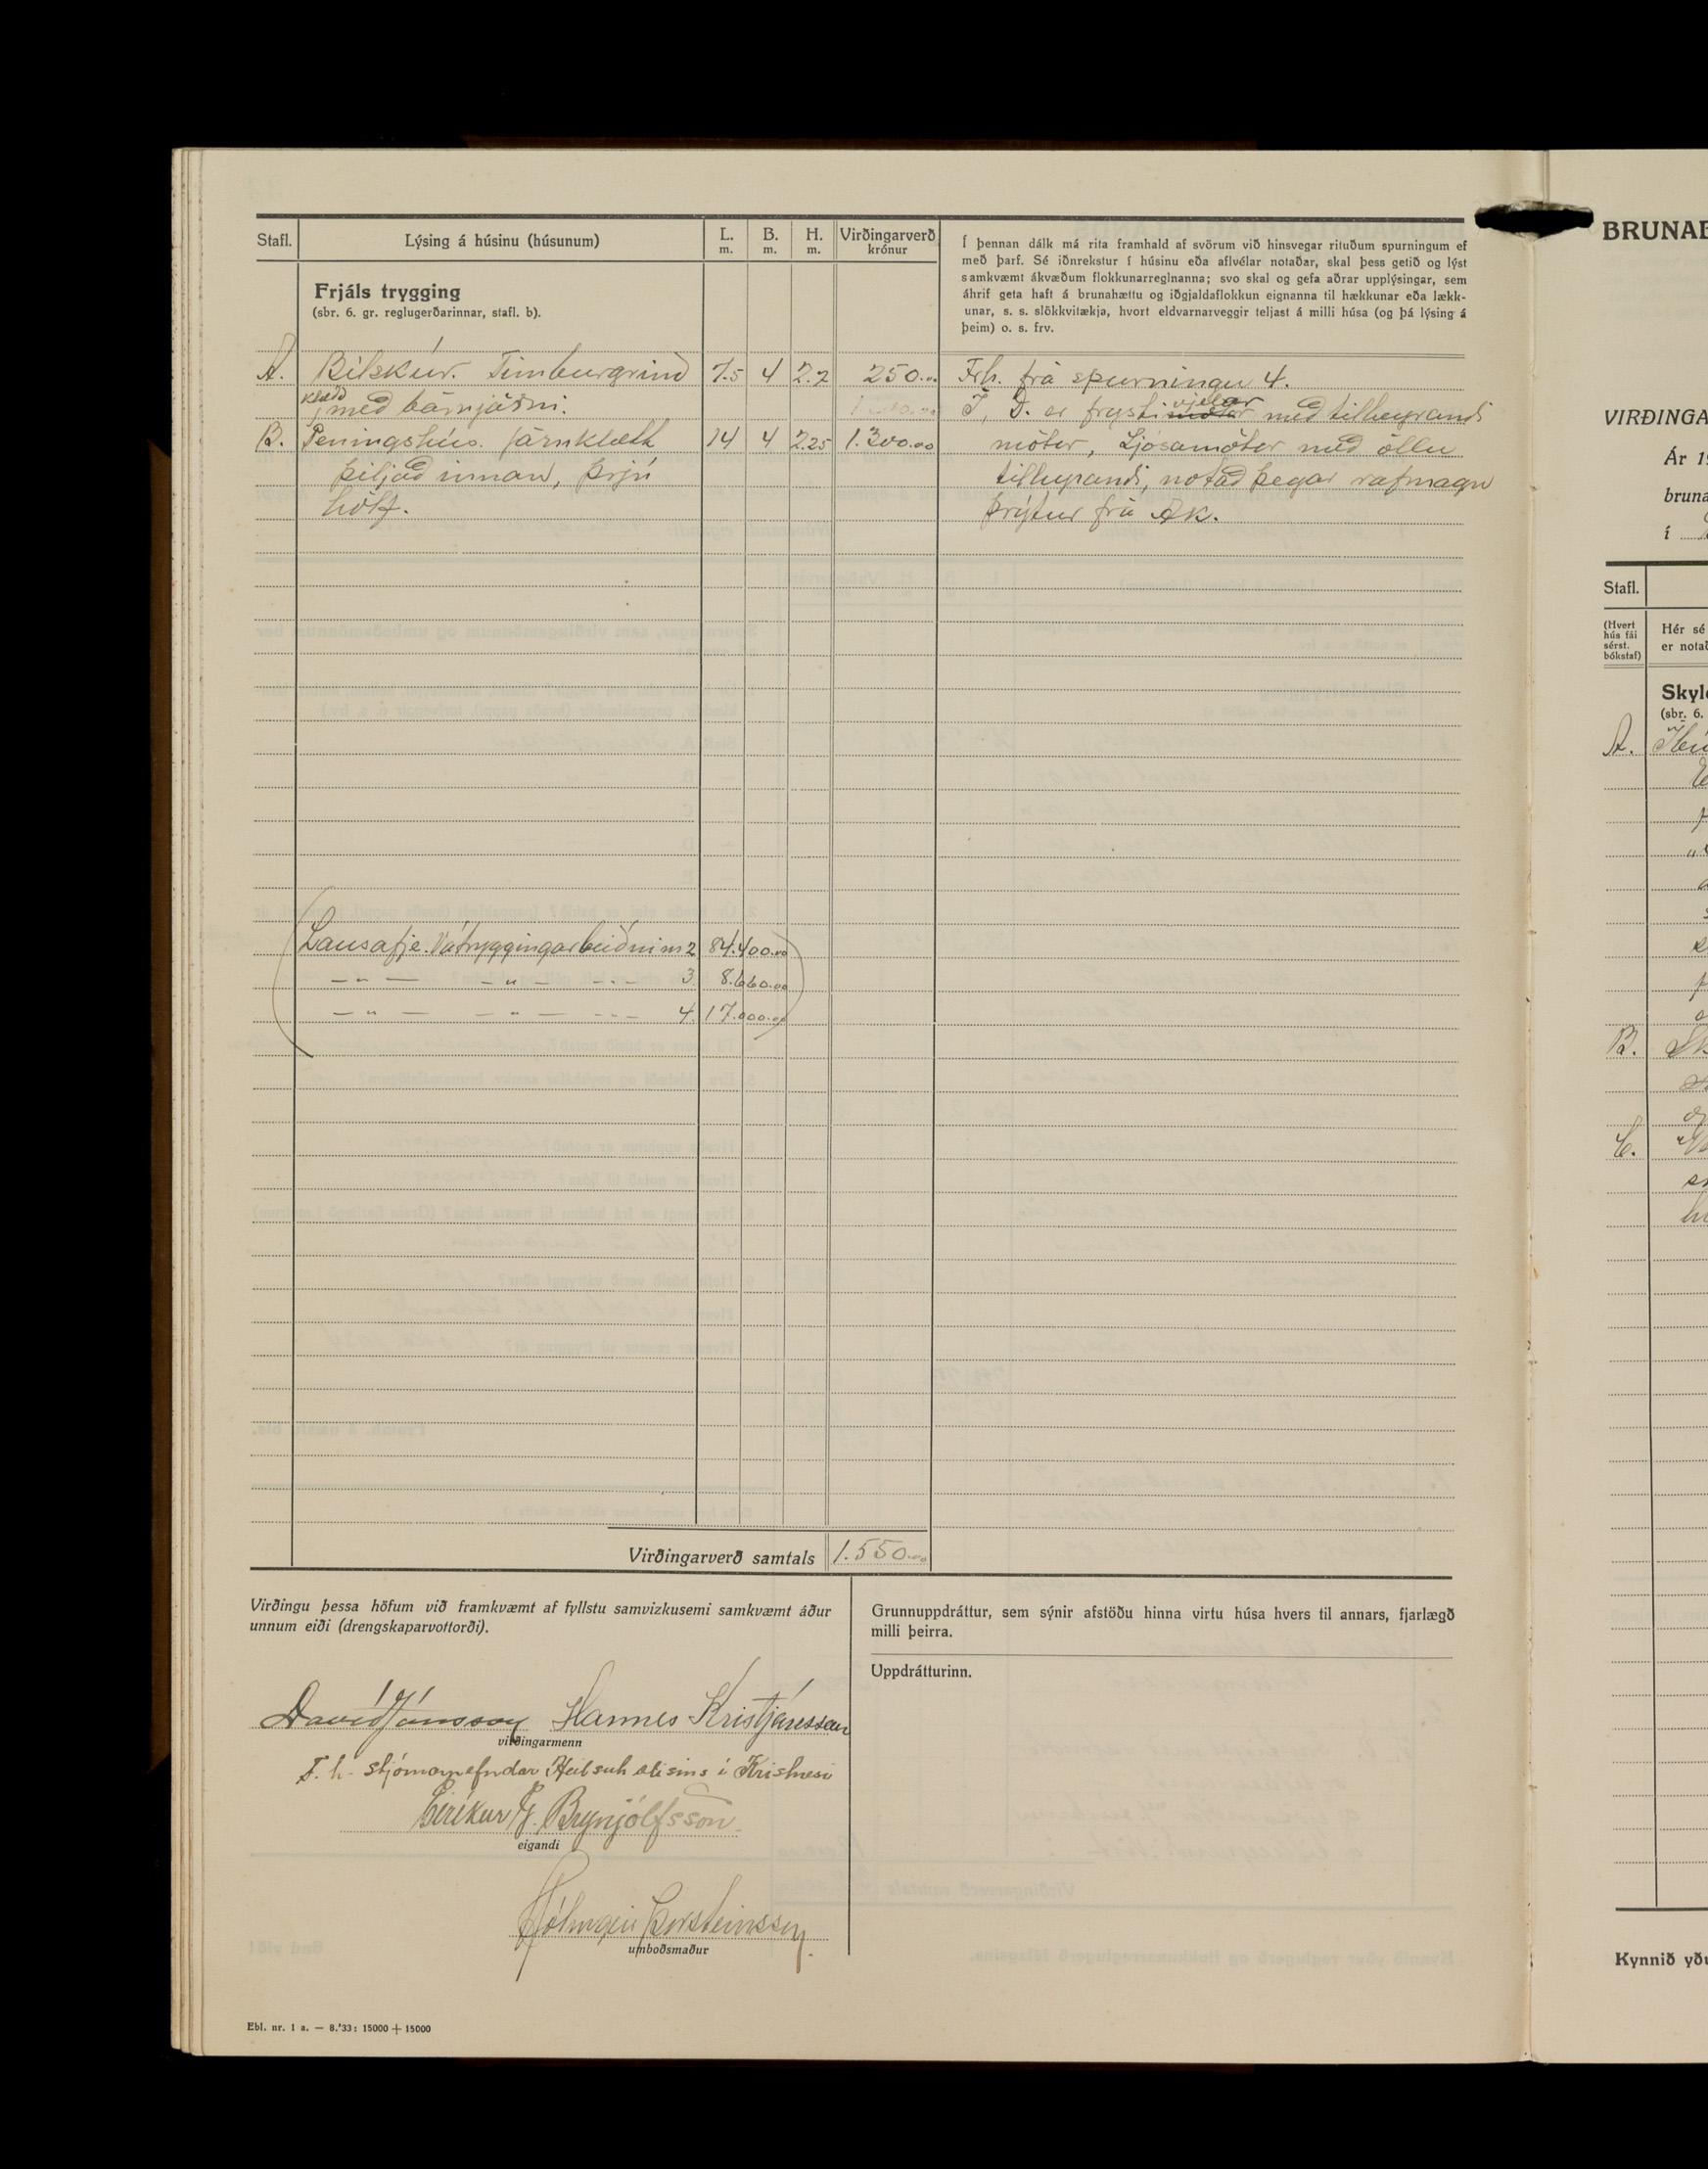 Stafl.
Lýsing á húsinu (húsunum)
L. m.
B. m.
H. m.
Virðingarverð krónur
Í þennan dálk má rita framhald af svörum við hinsvegar rituðum spurningum ef
með þarf. Sé iðnrekstur í húsinu eða aflvélar notaðar, skal þess getið og lýst
samkvæmt ákvæðum flokkunarreglnanna; svo skal og gefa aðrar upplýsingar, sem
áhrif geta haft á brunahættu og iðgjaldaflokkun eignanna til hækkunar eða lækk-
unar, s. s. slökkvitækja, hvort eldvarnarveggir teljast á milli húsa (og þá lýsing á
þeim) o. s. frv.
Frjáls trygging
(sbr. 6. gr. reglugerðarinnar, stafl. b).
A. Bílskúr. Timburgrind 7.5 4 2.2 250.00
klædd með bárujárni.
B. Peningshús. Járnklætt 14 4 2.25 1.300.00
þiljað innan, þrjú
hólf.
Frh. frá spurningu 4.
Í, D. er frystivjelar með tilheyrandi
mótor, Ljósamótor með öllu
tilheyrandi, notað þegar rafmagn
þrýtur frá Ak.
Lausafje. Vátryggingarbeiðni nr 2 84.400.00
— " — — " — - - - 3 8.660.00
— " — — " — - - - 4. 17.000.00
Virðingarverð samtals 1.550.00
Virðingu þessa höfum við framkvæmt af fyllstu samvizkusemi samkvæmt áður
unnum eiði (drengskaparvottorði).
Davíð Jónsson Hannes Kristjánsson
virðingarmenn
F. h. stjórnarnefndar Heilsuhælisins í Kristnesi
Eiríkur G. Brynjólfsson
eigandi
Hólmgeir Þorsteinsson
umboðsmaður
Grunnuppdráttur, sem sýnir afstöðu hinna virtu húsa hvers til annars, fjarlægð
milli þeirra.
Uppdrátturinn.
Ebl. nr. 1 a. — 8.'33: 15000 + 15000
BRUNAB
VIRÐINGA
Ár 1
bruna
í
Stafl.
(Hvert hús fái sérst. bókstaf)
Hér sé
er notað
Skyl
(sbr. 6.
A.
B.
C.
Kynnið yðu